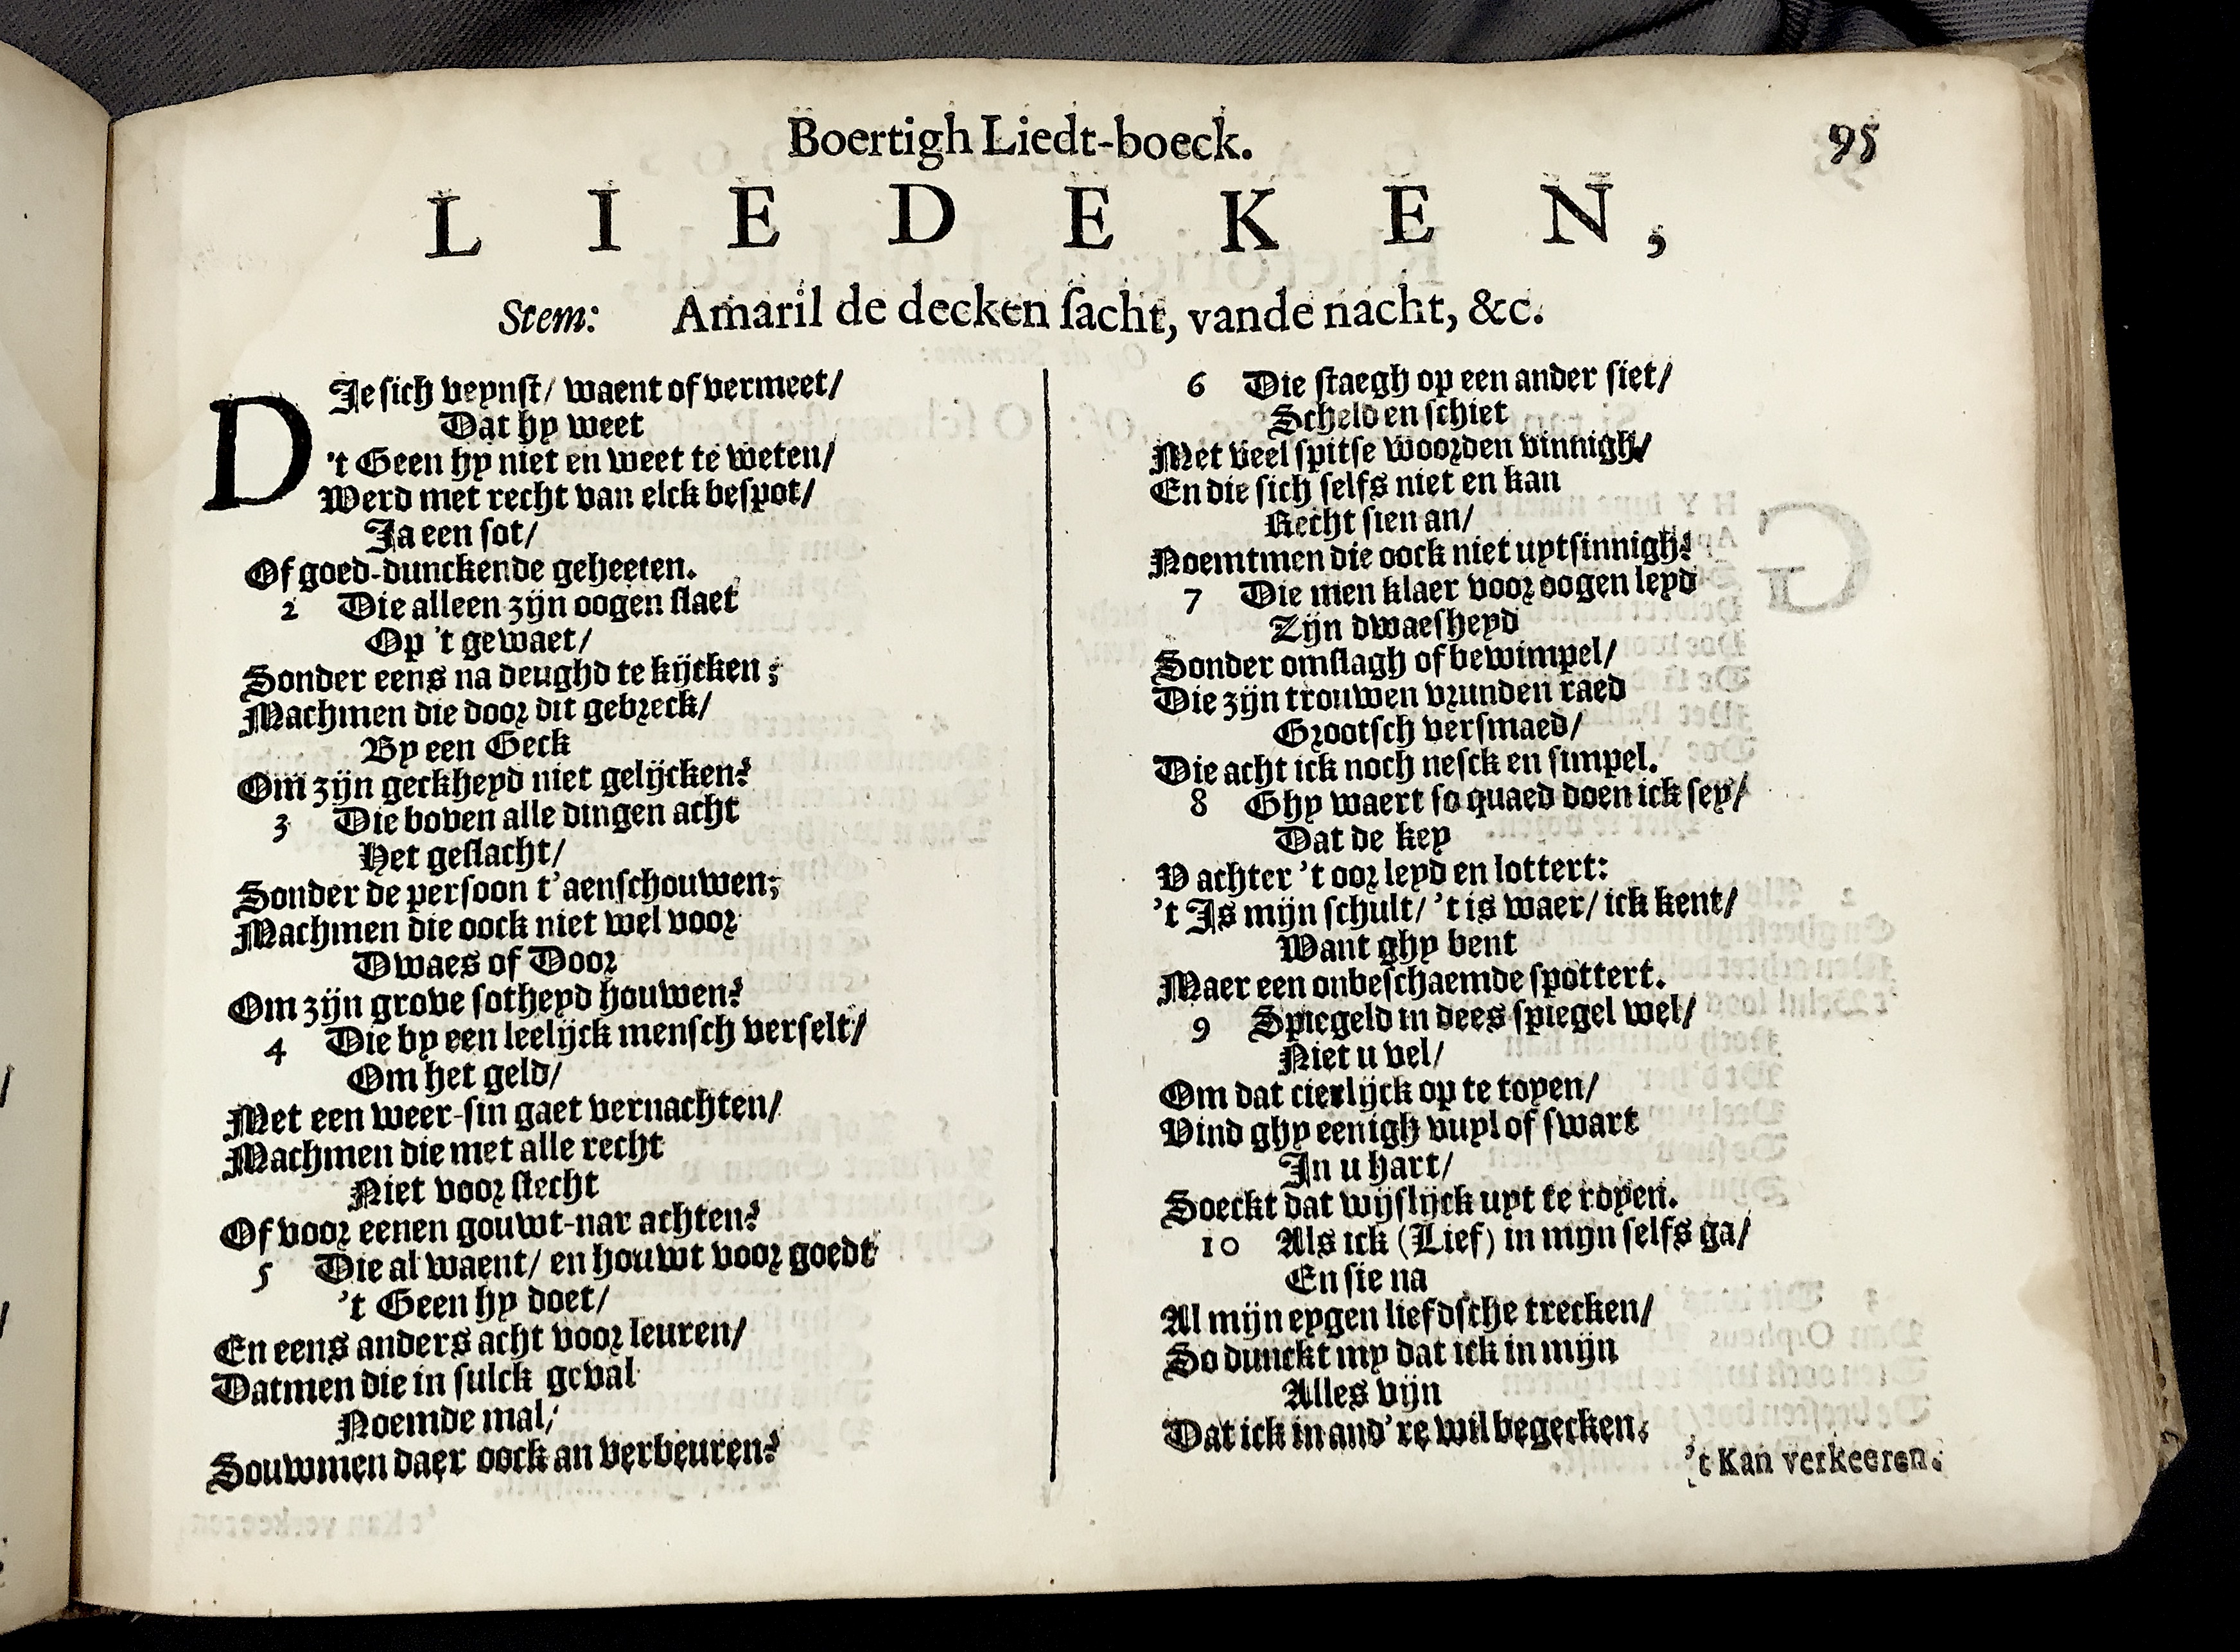 Boertigh Liedt-boeck. 95
LIEDEKEN,
Stem: Amaril de decken ſacht, vande nacht, &c.
DJe sich veynst/ waent of vermeet/
Dat hy weet
't Geen hy niet en weet te weten/
Werd met recht van elck bespot/
Ja een sot/
Of goed-dunckende geheeten.
2 Die alleen zijn oogen slaet
Op 't gewaet/
Sonder eens na deughd te kijcken;
Machmen die door dit gebreck/
By een Geck
Om zijn geckheyd niet gelijcken?
3 Die boven alle dingen acht
Het geslacht/
Sonder de persoon t'aenschouwen;
Machmen die oock niet wel voor
Dwaes of Door
Om zijn grove sotheyd houwen?
4 Die by een leelijck mensch verselt/
Om het geld/
Met een weer-sin gaet vernachten/
Machmen die met alle recht
Niet voor slecht
Of voor eenen gouwt-nar achten?
5 Die al waent/ en houwt voor goedt
't Geen hy doet/
En eens anders acht voor leuren/
Datmen die in sulck geval
Noemde mal/
Souwmen daer oock an verbeuren?
6 Die staegh op een ander siet/
Scheld en schiet
Met veel spitse woorden vinnigh/
En die sich selfs niet en kan
Recht sien an/
Noemtmen die oock niet uytsinnigh?
7 Die men klaer voor oogen leyd
Zijn dwaesheyd
Sonder omslagh of bewimpel/
Die zijn trouwen vrunden raed
Grootsch versmaed/
Die acht ick noch nesck en simpel.
8 Ghy waert so quaed doen ick sey/
Dat de key
V achter 't oor leyd en lottert:
't Js mijn schult/ 't is waer/ ick kent/
Want ghy bent
Maer een onbeschaemde spottert.
9 Spiegeld in dees spiegel wel/
Niet u vel/
Om dat cierlijck op te toyen/
Vind ghy eenigh vuyl of swart
Jn u hart/
Soeckt dat wijslijck uyt te royen.
10 Als ick (Lief) in mijn selfs ga/
En sie na
Al mijn eygen liefdsche trecken/
So dunckt my dat ick in mijn
Alles vijn
Dat ick in and're wil begecken.
't Kan verkeeren.